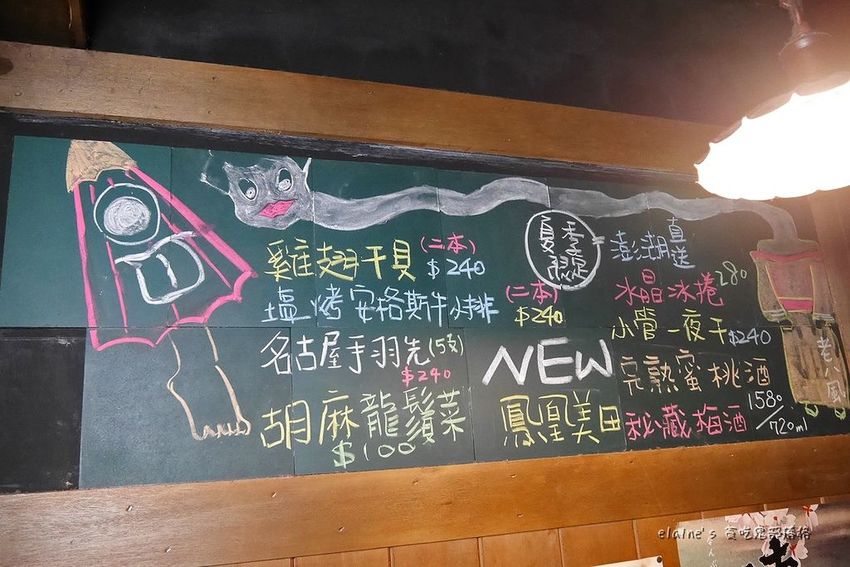 雞翅干貝(二本)
$240
塩烤安格斯牛小排(二本)
$240
名古屋手羽先(5支)
$240
胡麻龍鬚菜
$100
夏季限定=澎湖直送
水晶冰捲280
小管一夜干$240
NEW
鳳凰美田
完熟蜜桃酒
秘藏梅酒
1580/720ml
elaine's 貪吃鬼部落格